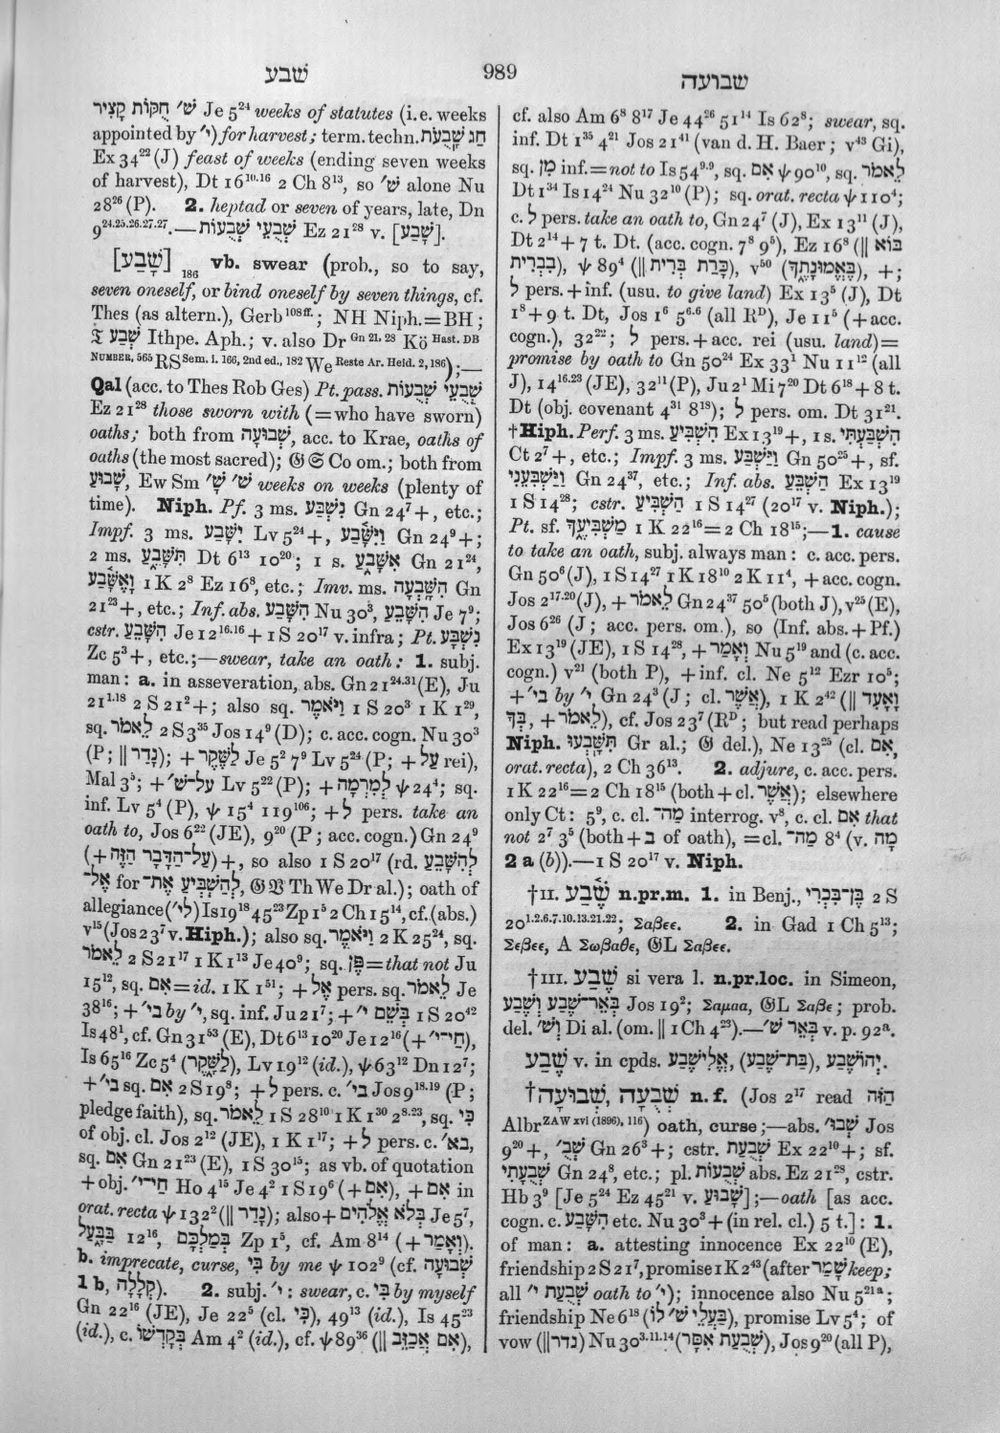 שבע
989
שבועה
שׁ׳ חֻקּוֹת קָצִיר Je 5²⁴ weeks of statutes (i.e. weeks
appointed by י׳) for harvest; term. techn. חַג שָׁבֻעֹת
Ex 34²² (J) feast of weeks (ending seven weeks
of harvest), Dt 16¹⁰·¹⁶ 2 Ch 8¹³, so שׁ׳ alone Nu
28²⁶ (P). 2. heptad or seven of years, late, Dn
9²⁴·²⁵·²⁶·²⁷·²⁷.—שְׁבֻעֵי שְׁבֻעוֹת Ez 21²⁸ v. [שָׁבַע].
[שָׁבַע] ₁₈₆ vb. swear (prob., so to say,
seven oneself, or bind oneself by seven things, cf.
Thes (as altern.), Gerb¹⁰⁸ᶠᶠ·; NH Niph.=BH;
𝔗 שְׁבַע Ithpe. Aph.; v. also Dr Gn 21, 28 Kö Hast. DB
NUMBER, 565 RS Sem. i. 166, 2nd ed., 182 We Reste Ar. Heid. 2, 186);—
Qal (acc. to Thes Rob Ges) Pt. pass. שְׁבֻעֵי שְׁבֻעוֹת
Ez 21²⁸ those sworn with (=who have sworn)
oaths; both from שְׁבוּעָה, acc. to Krae, oaths of
oaths (the most sacred); 𝔊 𝔖 Co om.; both from
שָׁבוּעַ, Ew Sm שׁ׳ שָׁ׳ weeks on weeks (plenty of
time). Niph. Pf. 3 ms. נִשְׁבַּע Gn 24⁷+, etc.;
Impf. 3 ms. יִשָּׁבַע Lv 5²⁴+, וַיִּשָּׁבַע Gn 24⁹+;
2 ms. תִּשָּׁבֵעַ Dt 6¹³ 10²⁰; 1 s. אִשָּׁבֵעַ Gn 21²⁴,
וָאֶשָּׁבַע 1 K 2⁸ Ez 16⁸, etc.; Imv. ms. הִשָּׁבְעָה Gn
21²³+, etc.; Inf. abs. הִשָּׁבַע Nu 30³, הִשָּׁבֵעַ Je 7⁹;
cstr. הִשָּׁבַע Je 12¹⁶·¹⁶+1 S 20¹⁷ v. infra; Pt. נִשְׁבָּע
Zc 5³+, etc.;—swear, take an oath: 1. subj.
man: a. in asseveration, abs. Gn 21²⁴·³¹ (E), Ju
21¹·¹⁸ 2 S 21²+; also sq. וַיֹּאמֶר 1 S 20³ 1 K 1²⁹,
sq. לֵאמֹר 2 S 3³⁵ Jos 14⁹ (D); c. acc. cogn. Nu 30³
(P; ‖ נָדַר); + לַשֶּׁקֶר Je 5² 7⁹ Lv 5²⁴ (P; + עַל rei),
Mal 3⁵; + עַל־שׁ׳ Lv 5²² (P); + לְמִרְמָה ψ 24⁴; sq.
inf. Lv 5⁴ (P), ψ 15⁴ 119¹⁰⁶; + לְ pers. take an
oath to, Jos 6²² (JE), 9²⁰ (P; acc. cogn.) Gn 24⁹
(+ עַל־הַדָּבָר הַזֶּה)+, so also 1 S 20¹⁷ (rd. לְהִשָּׁבֵעַ
אֶל־ for לְהַשְׁבִּיעַ אֶת־, 𝔊 𝔙 Th We Dr al.); oath of
allegiance (לי׳) Is 19¹⁸ 45²³ Zp 1⁵ 2 Ch 15¹⁴, cf. (abs.)
v¹⁵ (Jos 23⁷ v. Hiph.); also sq. וַיֹּאמֶר 2 K 25²⁴, sq.
לֵאמֹר 2 S 21¹⁷ 1 K 1¹³ Je 40⁹; sq. פֶּן=that not Ju
15¹², sq. אִם=id. 1 K 1⁵¹; + אֶל pers. sq. לֵאמֹר Je
38¹⁶; + בי׳ by י׳, sq. inf. Ju 21⁷; + בְּשֵׁם י׳ 1 S 20⁴²
Is 48¹, cf. Gn 31⁵³ (E), Dt 6¹³ 10²⁰ Je 12¹⁶ (+ חַי־י׳),
Is 65¹⁶ Zc 5⁴ (לַשָּׁקֶר), Lv 19¹² (id.), ψ 63¹² Dn 12⁷;
+ בי׳ sq. אִם 2 S 19⁸; + לְ pers. c. בי׳ Jos 9¹⁸·¹⁹ (P;
pledge faith), sq. לֵאמֹר 1 S 28¹⁰ 1 K 1³⁰ 2⁸·²³, sq. כִּי
of obj. cl. Jos 2¹² (JE), 1 K 1¹⁷; + לְ pers. c. בא׳,
sq. אִם Gn 21²³ (E), 1 S 30¹⁵; as vb. of quotation
+ obj. חַי־י׳ Ho 4¹⁵ Je 4² 1 S 19⁶ (+ אִם), + אִם in
orat. recta ψ 132² (‖ נָדַר); also + בְּלֹא אֱלֹהִים Je 5⁷,
בַּבַּעַל 12¹⁶, בְּמַלְכָּם Zp 1⁵, cf. Am 8¹⁴ (+ וְאָמַר).
b. imprecate, curse, בִּי by me ψ 102⁹ (cf. שְׁבוּעָה
1 b, קְלָלָה). 2. subj. י׳: swear, c. בִּי by myself
Gn 22¹⁶ (JE), Je 22⁵ (cl. כִּי), 49¹³ (id.), Is 45²³
(id.), c. בְּקָדְשׁוֹ Am 4² (id.), cf. ψ 89³⁶ (‖ אִם אֲכַזֵּב),
cf. also Am 6⁸ 8¹⁷ Je 44²⁶ 51¹⁴ Is 62⁸; swear, sq.
inf. Dt 1³⁵ 4²¹ Jos 21⁴¹ (van d. H. Baer; v⁴³ Gi),
sq. מִן inf.=not to Is 54⁹·⁹, sq. אִם ψ 90¹⁰, sq. לֵאמֹר
Dt 1³⁴ Is 14²⁴ Nu 32¹⁰ (P); sq. orat. recta ψ 110⁴;
c. לְ pers. take an oath to, Gn 24⁷ (J), Ex 13¹¹ (J),
Dt 2¹⁴+7 t. Dt. (acc. cogn. 7⁸ 9⁵), Ez 16⁸ (‖ בּוֹא
בִּבְרִית), ψ 89⁴ (‖ כָּרַת בְּרִית), v⁵⁰ (בֶּאֱמוּנָתֶךָ), +;
לְ pers. + inf. (usu. to give land) Ex 13⁵ (J), Dt
1⁸+9 t. Dt, Jos 1⁶ 5⁶·⁶ (all Rᴰ), Je 11⁵ (+acc.
cogn.), 32²²; לְ pers. + acc. rei (usu. land)=
promise by oath to Gn 50²⁴ Ex 33¹ Nu 11¹² (all
J), 14¹⁶·²³ (JE), 32¹¹ (P), Ju 2¹ Mi 7²⁰ Dt 6¹⁸+8 t.
Dt (obj. covenant 4³¹ 8¹⁸); לְ pers. om. Dt 31²¹.
†Hiph. Perf. 3 ms. הִשְׁבִּיעַ Ex 13¹⁹+, 1 s. הִשְׁבַּעְתִּי
Ct 2⁷+, etc.; Impf. 3 ms. וַיַּשְׁבַּע Gn 50²⁵+, sf.
וַיַּשְׁבִּעֵנִי Gn 24³⁷, etc.; Inf. abs. הַשְׁבֵּעַ Ex 13¹⁹
1 S 14²⁸; cstr. הַשְׁבִּיעַ 1 S 14²⁷ (20¹⁷ v. Niph.);
Pt. sf. מַשְׁבִּיעֶךָ 1 K 22¹⁶=2 Ch 18¹⁵;—1. cause
to take an oath, subj. always man: c. acc. pers.
Gn 50⁶ (J), 1 S 14²⁷ 1 K 18¹⁰ 2 K 11⁴, + acc. cogn.
Jos 2¹⁷·²⁰ (J), + לֵאמֹר Gn 24³⁷ 50⁵ (both J), v²⁵ (E),
Jos 6²⁶ (J; acc. pers. om.), so (Inf. abs.+Pf.)
Ex 13¹⁹ (JE), 1 S 14²⁸, + וְאָמַר Nu 5¹⁹ and (c. acc.
cogn.) v²¹ (both P), + inf. cl. Ne 5¹² Ezr 10⁵;
+ בי׳ by י׳ Gn 24³ (J; cl. אֲשֶׁר), 1 K 2⁴² (‖ וָאָעִד
בְּךָ, + לֵאמֹר), cf. Jos 23⁷ (Rᴰ; but read perhaps
Niph. תִּשָּׁבְעוּ Gr al.; 𝔊 del.), Ne 13²⁵ (cl. אִם,
orat. recta), 2 Ch 36¹³. 2. adjure, c. acc. pers.
1 K 22¹⁶=2 Ch 18¹⁵ (both + cl. אֲשֶׁר); elsewhere
only Ct: 5⁹, c. cl. מָה־ interrog. v⁸, c. cl. אִם that
not 2⁷ 3⁵ (both + בְּ of oath), =cl. מַה־ 8⁴ (v. מָה
2 a (b)).—1 S 20¹⁷ v. Niph.
†II. שֶׁבַע n.pr.m. 1. in Benj., בֶּן־בִּכְרִי, 2 S
20¹·²·⁶·⁷·¹⁰·¹³·²¹·²²; Σαβεε. 2. in Gad 1 Ch 5¹³;
Σεβεε, A Σωβαθε, 𝔊L Σαβεε.
†III. שֶׁבַע si vera l. n.pr.loc. in Simeon,
בְּאֵר־שֶׁבַע וְשֶׁבַע Jos 19²; Σαμαα, 𝔊L Σαβε; prob.
del. וְשׁ׳ Di al. (om. ‖ 1 Ch 4²³).—בְּאֵר שׁ׳ v. p. 92ᵃ.
שֶׁבַע v. in cpds. אֱלִישֶׁבַע, (בַּת־שֶׁבַע), יְהוֹשֶׁבַע.
†שְׁבֻעָה, שְׁבוּעָה n. f. (Jos 2¹⁷ read הַזֶּה
Albr ZAW xvi (1896), 116) oath, curse;—abs. שְׁבוּ׳ Jos
9²⁰+, שְׁבֻ׳ Gn 26³+; cstr. שְׁבֻעַת Ex 22¹⁰+; sf.
שְׁבֻעָתִי Gn 24⁸, etc.; pl. שְׁבֻעוֹת abs. Ez 21²⁸, cstr.
Hb 3⁹ [Je 5²⁴ Ez 45²¹ v. שָׁבוּעַ];—oath [as acc.
cogn. c. הִשָּׁבַע etc. Nu 30³+(in rel. cl.) 5 t.]: 1.
of man: a. attesting innocence Ex 22¹⁰ (E),
friendship 2 S 21⁷, promise 1 K 2⁴³ (after שָׁמַר keep;
all שְׁבֻעַת י׳ oath to י׳); innocence also Nu 5²¹ᵃ;
friendship Ne 6¹⁸ (בַּעֲלֵי שׁ׳ לוֹ), promise Lv 5⁴; of
vow (‖ נדר) Nu 30³·¹¹·¹⁴ (שְׁבֻעַת אִסָּר), Jos 9²⁰ (all P),